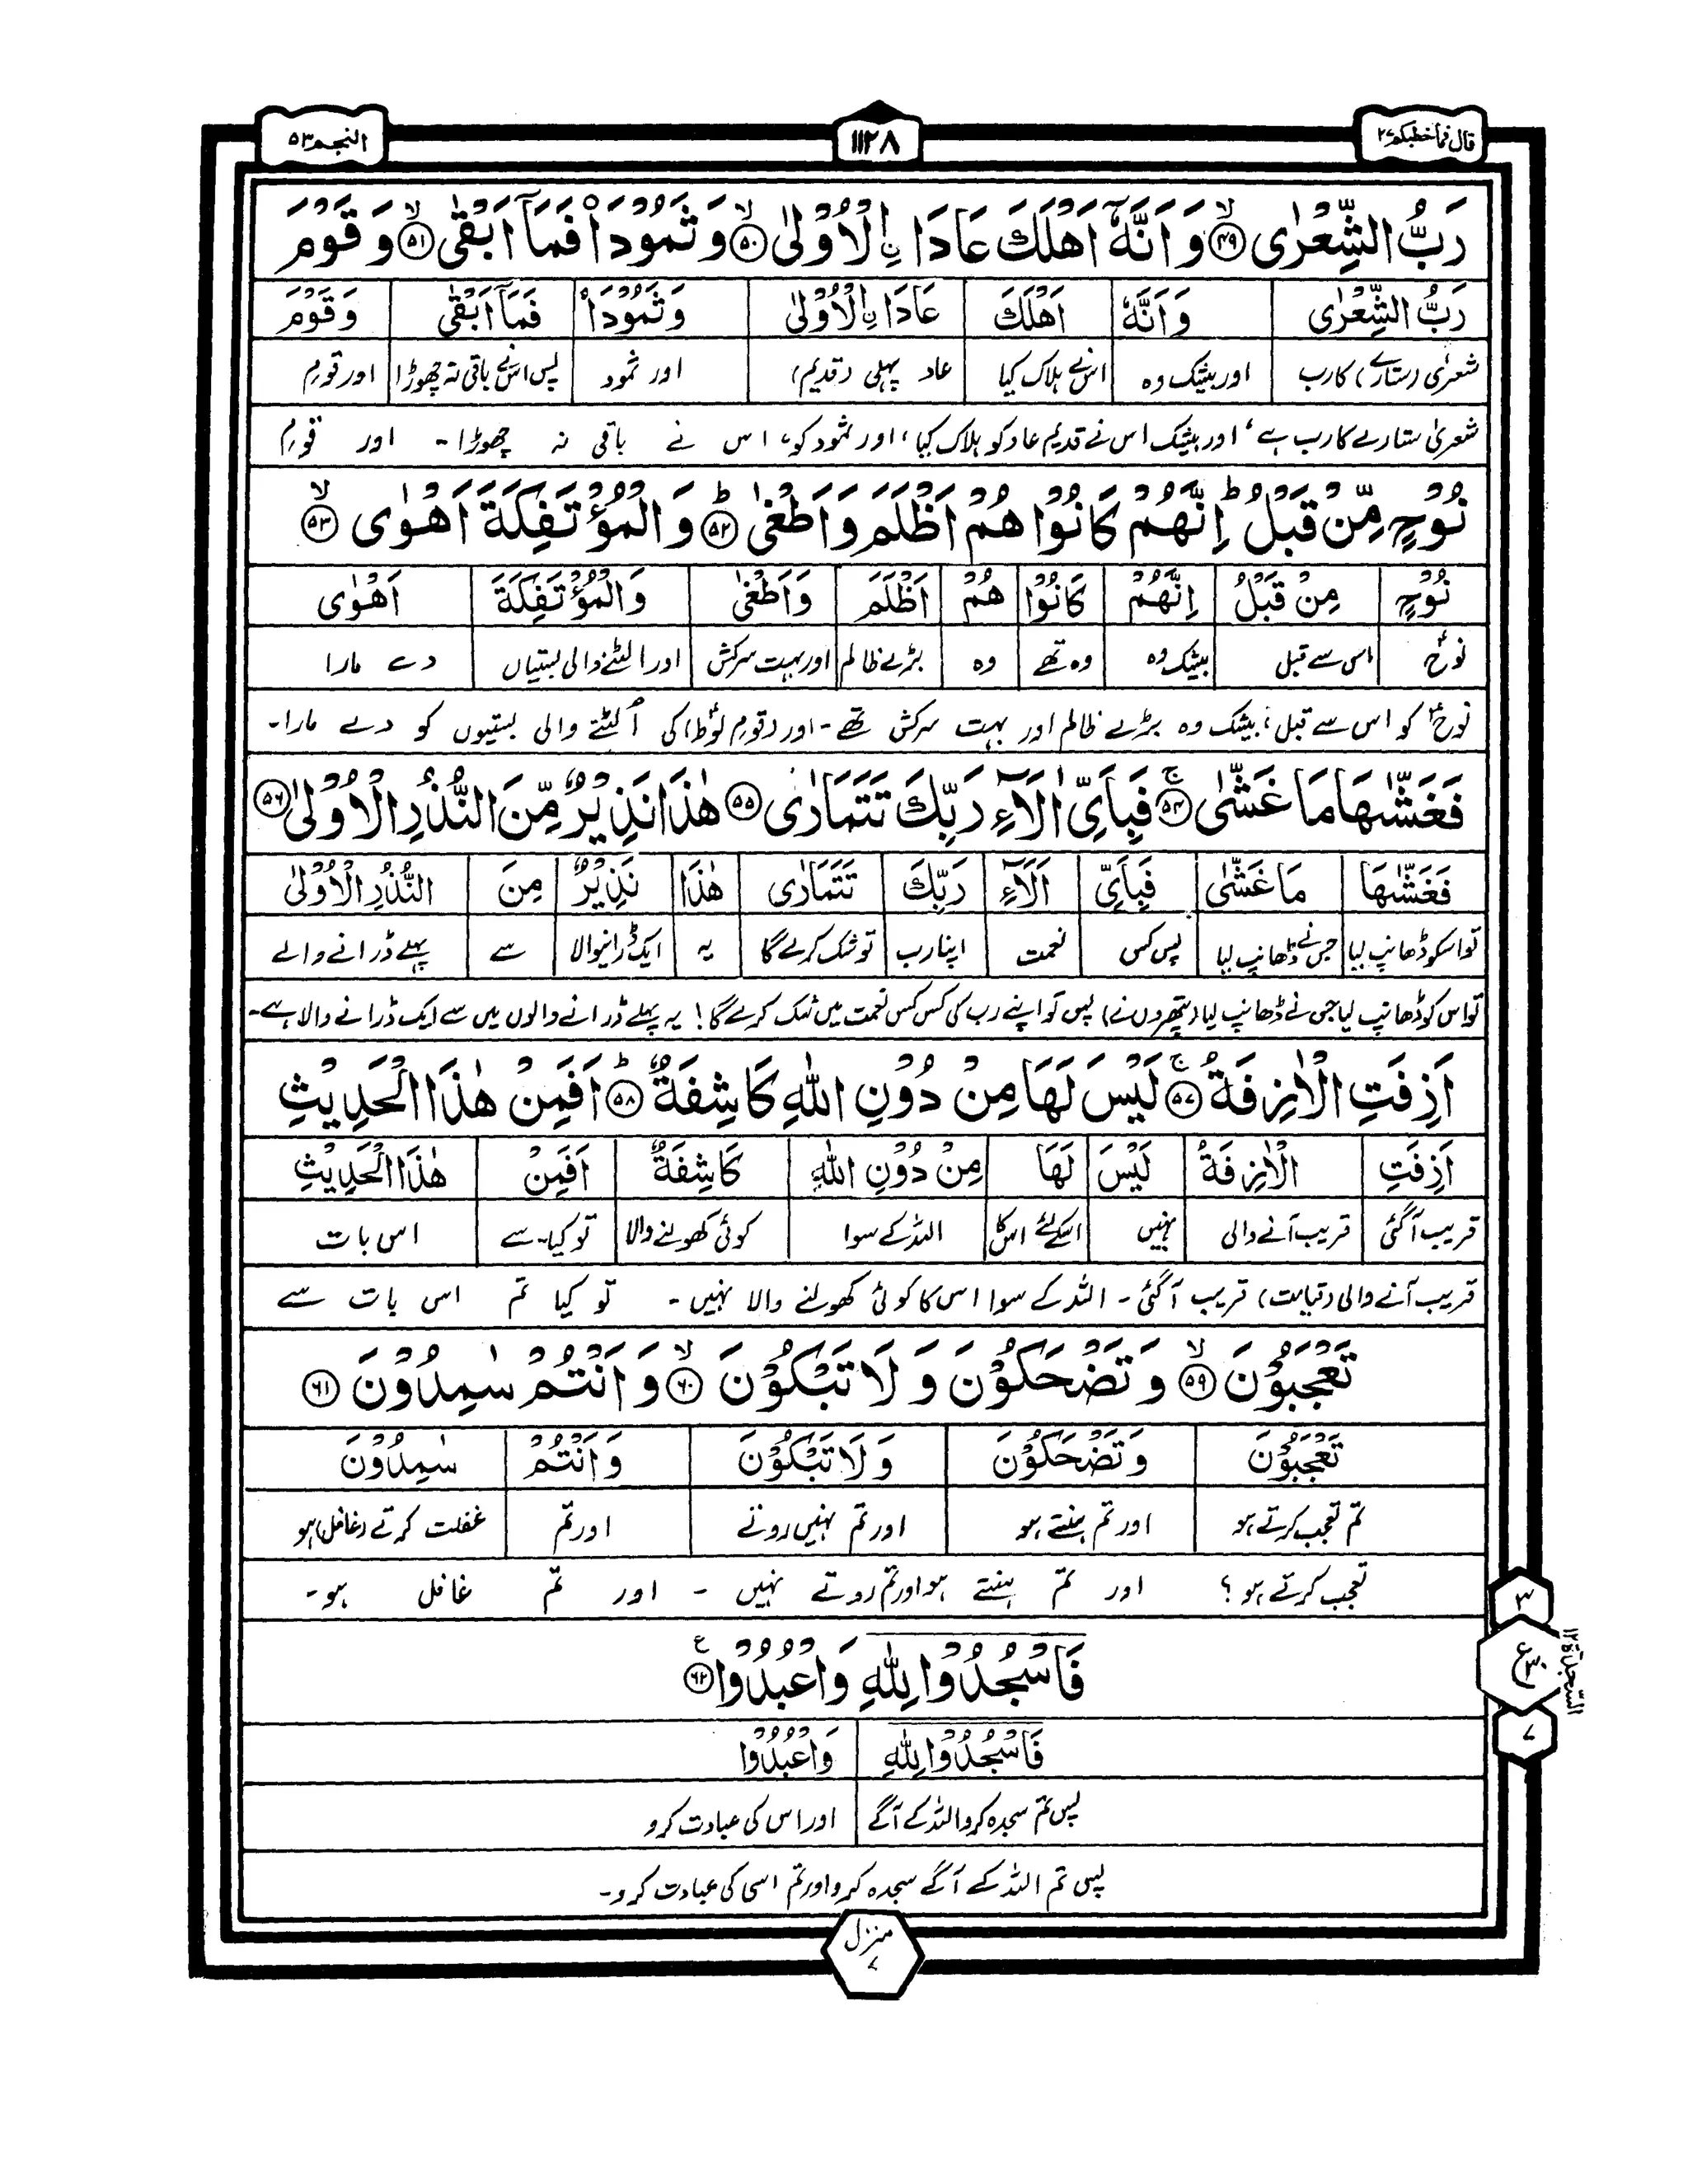 قال فما خطبکم ۲۷
۱۱۲۸
النجم ۵۳
رَبُّ الشِّعْرٰى ﴿۴۹﴾ وَ اَنَّهٗۤ اَهْلَكَ عَادَا ۨالْاُوْلٰى ﴿۵۰﴾ وَ ثَمُوْدَا۠ فَمَاۤ اَبْقٰى ﴿۵۱﴾ وَ قَوْمَ
رَبُّ الشِّعْرٰى وَ اَنَّهٗ اَهْلَكَ عَادَا ۨالْاُوْلٰى وَ ثَمُوْدَا۠ فَمَاۤ اَبْقٰى وَ قَوْمَ
شعریٰ (ستارے) کا رب اور بیشک وہ اس نے ہلاک کیا عاد پہلی (قدیم) اور ثمود پس اس نے باقی نہ چھوڑا اور قوم
شعریٰ ستارے کا رب ہے، اور بیشک اس نے قدیم عاد کو ہلاک کیا، اور ثمود کو، اس نے باقی نہ چھوڑا۔ اور قومِ
نُوْحٍ مِّنْ قَبْلُ ؕ اِنَّهُمْ كَانُوْا هُمْ اَظْلَمَ وَ اَطْغٰى ﴿۵۲﴾ؕ وَ الْمُؤْتَفِكَةَ اَهْوٰى ﴿۵۳﴾
نُوْحٍ مِنْ قَبْلُ اِنَّهُمْ كَانُوْا هُمْ اَظْلَمَ وَ اَطْغٰى وَ الْمُؤْتَفِكَةَ اَهْوٰى
نوحؑ اس سے قبل بیشک وہ وہ تھے وہ بڑے ظالم اور بہت سرکش اور الٹنے والی بستیاں دے مارا
نوحؑ کو اس سے قبل، بیشک وہ بڑے ظالم اور بہت سرکش تھے۔ اور (قومِ لوطؑ) کی اُلٹنے والی بستیوں کو دے مارا۔
فَغَشّٰىهَا مَا غَشّٰى ﴿۵۴﴾ۚ فَبِاَیِّ اٰلَآءِ رَبِّكَ تَتَمَارٰى ﴿۵۵﴾ هٰذَا نَذِیْرٌ مِّنَ النُّذُرِ الْاُوْلٰى ﴿۵۶﴾
فَغَشّٰىهَا مَا غَشّٰى فَبِاَیِّ اٰلَآءِ رَبِّكَ تَتَمَارٰى هٰذَا نَذِیْرٌ مِنَ النُّذُرِ الْاُوْلٰى
تو اسکو ڈھانپ لیا جس نے ڈھانپ لیا پس کس نعمت اپنا رب تو شک کرے گا یہ ایک ڈرانیوالا سے پہلے ڈرانے والے
تو اس کو ڈھانپ لیا جس نے ڈھانپ لیا (پتھروں نے) پس تو اپنے رب کی کس کس نعمت میں شک کرے گا! یہ پہلے ڈرانے والوں میں سے ایک ڈرانے والا ہے۔
اَزِفَتِ الْاٰزِفَةُ ﴿۵۷﴾ۚ لَیْسَ لَهَا مِنْ دُوْنِ اللّٰهِ كَاشِفَةٌ ﴿۵۸﴾ؕ اَفَمِنْ هٰذَا الْحَدِیْثِ
اَزِفَتِ الْاٰزِفَةُ لَیْسَ لَهَا مِنْ دُوْنِ اللّٰهِ كَاشِفَةٌ اَفَمِنْ هٰذَا الْحَدِیْثِ
قریب آگئی قریب آنے والی نہیں اسکے لئے اس کا اللہ کے سوا کوئی کھولنے والا تو کیا۔ سے اس بات
قریب آنے والی (قیامت) قریب آ گئی۔ اللہ کے سوا اس کا کوئی کھولنے والا نہیں۔ تو کیا تم اس بات سے
تَعْجَبُوْنَ ﴿۵۹﴾ۙ وَ تَضْحَكُوْنَ وَ لَا تَبْكُوْنَ ﴿۶۰﴾ۙ وَ اَنْتُمْ سٰمِدُوْنَ ﴿۶۱﴾
تَعْجَبُوْنَ وَ تَضْحَكُوْنَ وَ لَا تَبْكُوْنَ وَ اَنْتُمْ سٰمِدُوْنَ
تم تعجب کرتے ہو اور تم ہنستے ہو اور تم نہیں روتے اور تم غفلت کرتے (غافل) ہو
تعجب کرتے ہو؟ اور تم ہنستے ہو اور تم روتے نہیں۔ اور تم غافل ہو۔
فَاسْجُدُوْا لِلّٰهِ وَ اعْبُدُوْا ﴿۶۲﴾
۳
ع
۳۰
۷
السجدة ۱۲
فَاسْجُدُوْا لِلّٰهِ وَ اعْبُدُوْا
پس تم سجدہ کرو اللہ کے آگے اور اس کی عبادت کرو
پس تم اللہ کے آگے سجدہ کرو اور تم اسی کی عبادت کرو۔
منزل
۷